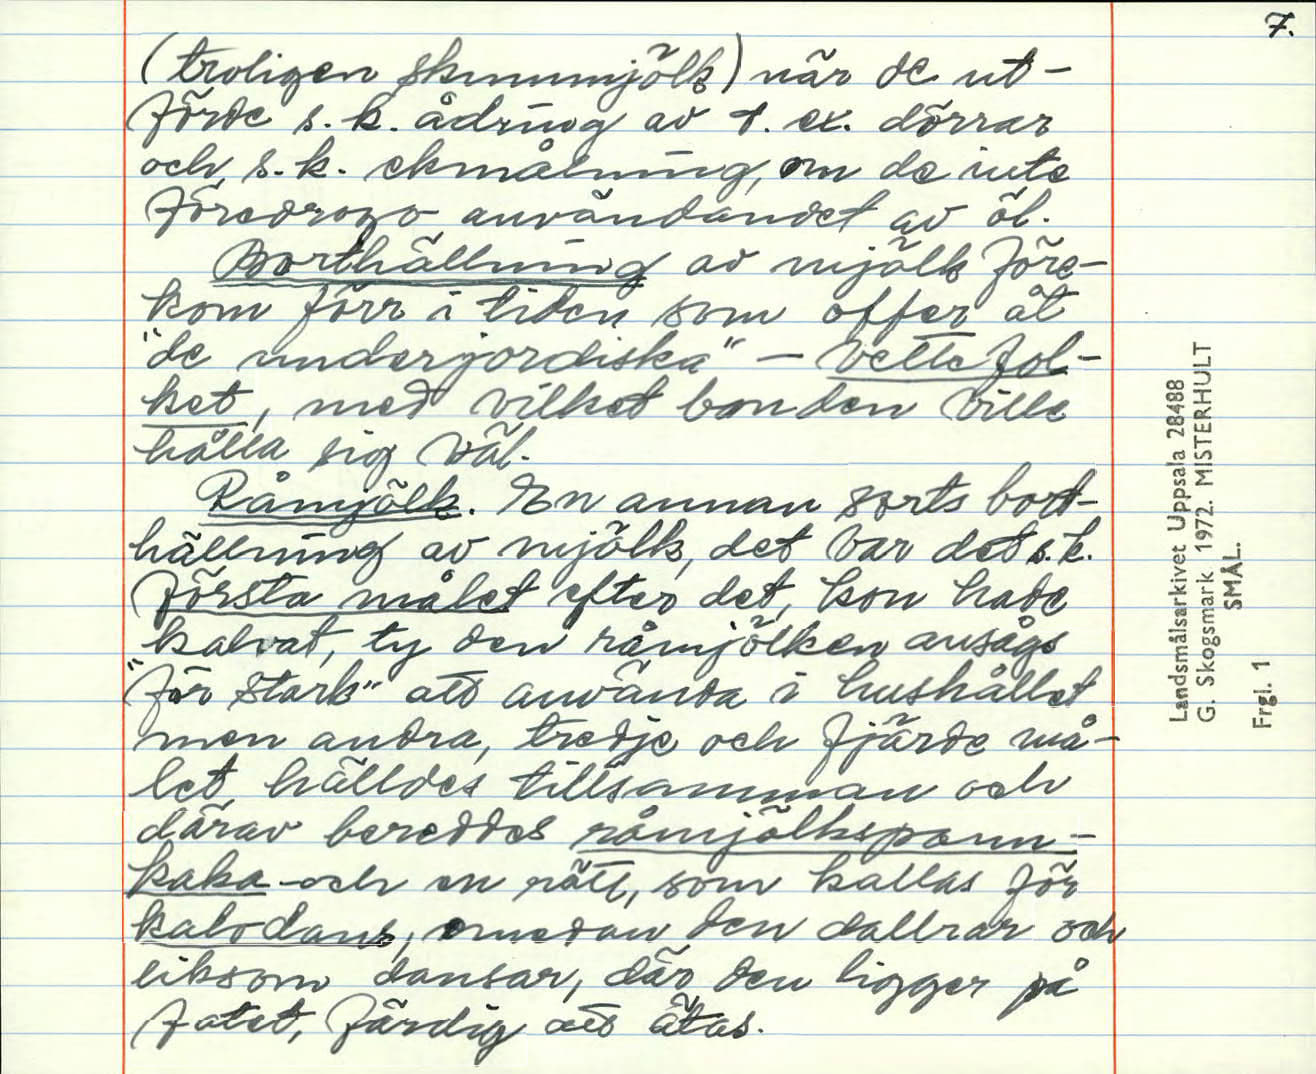 7.
(troligen skummjölk) när de ut-
förde s.k. ådring av t. ex. dörrar
och s.k. ekmålning, om de inte
föredrogo användandet av öl.
Borthällning av mjölk före-
kom förr i tiden som offer åt
"de underjordiska" - vettefol-
ket, med vilket bonden ville
hålla sig väl.
Råmjölk. En annan sorts bort-
hällning av mjölk, det var det s.k.
första målet efter det, kon hade
kalvat, ty den råmjölken ansågs
"för stark" att använda i hushållet
men andra, tredje och fjärde må-
let hälldes tillsamman och
därav bereddes råmjölkspann-
kaka och en rätt, som kallas för
kalvdans, emedan den dallrar och
liksom dansar, där den ligger på
fatet, färdig att ätas.
Landsmålsarkivet Uppsala 28488
G. Skogsmark 1972. MISTERHULT
SMÅL.
Frgl. 1